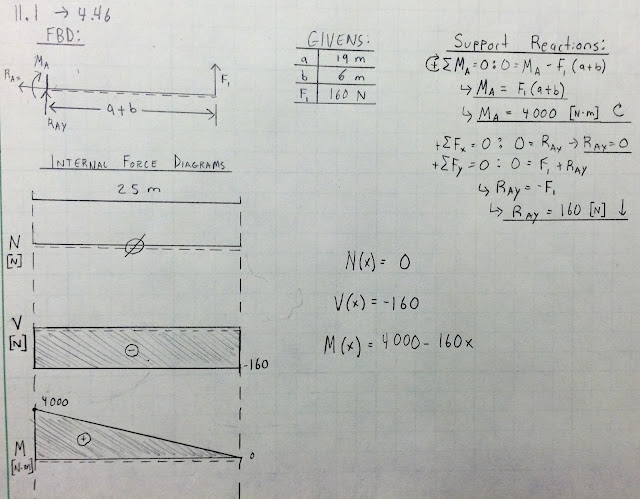 11.1 → 4.46
FBD:
M_A
R_Ax
F₁
a+b
R_AY
GIVENS:
a 19 m
b 6 m
F₁ 160 N
Support Reactions:
+ΣM_A=0: 0=M_A-F₁(a+b)
↳ M_A = F₁(a+b)
↳ M_A = 4000 [N·m]
+ΣF_x=0: 0=R_Ax → R_Ax=0
+ΣF_y=0: 0=F₁+R_AY
↳ R_AY=-F₁
↳ R_AY = 160 [N] ↓
INTERNAL FORCE DIAGRAMS
25 m
N
[N]
∅
V
[N]
-
-160
4000
+
M
[N·m]
0
N(x)= 0
V(x)=-160
M(x)=4000-160x